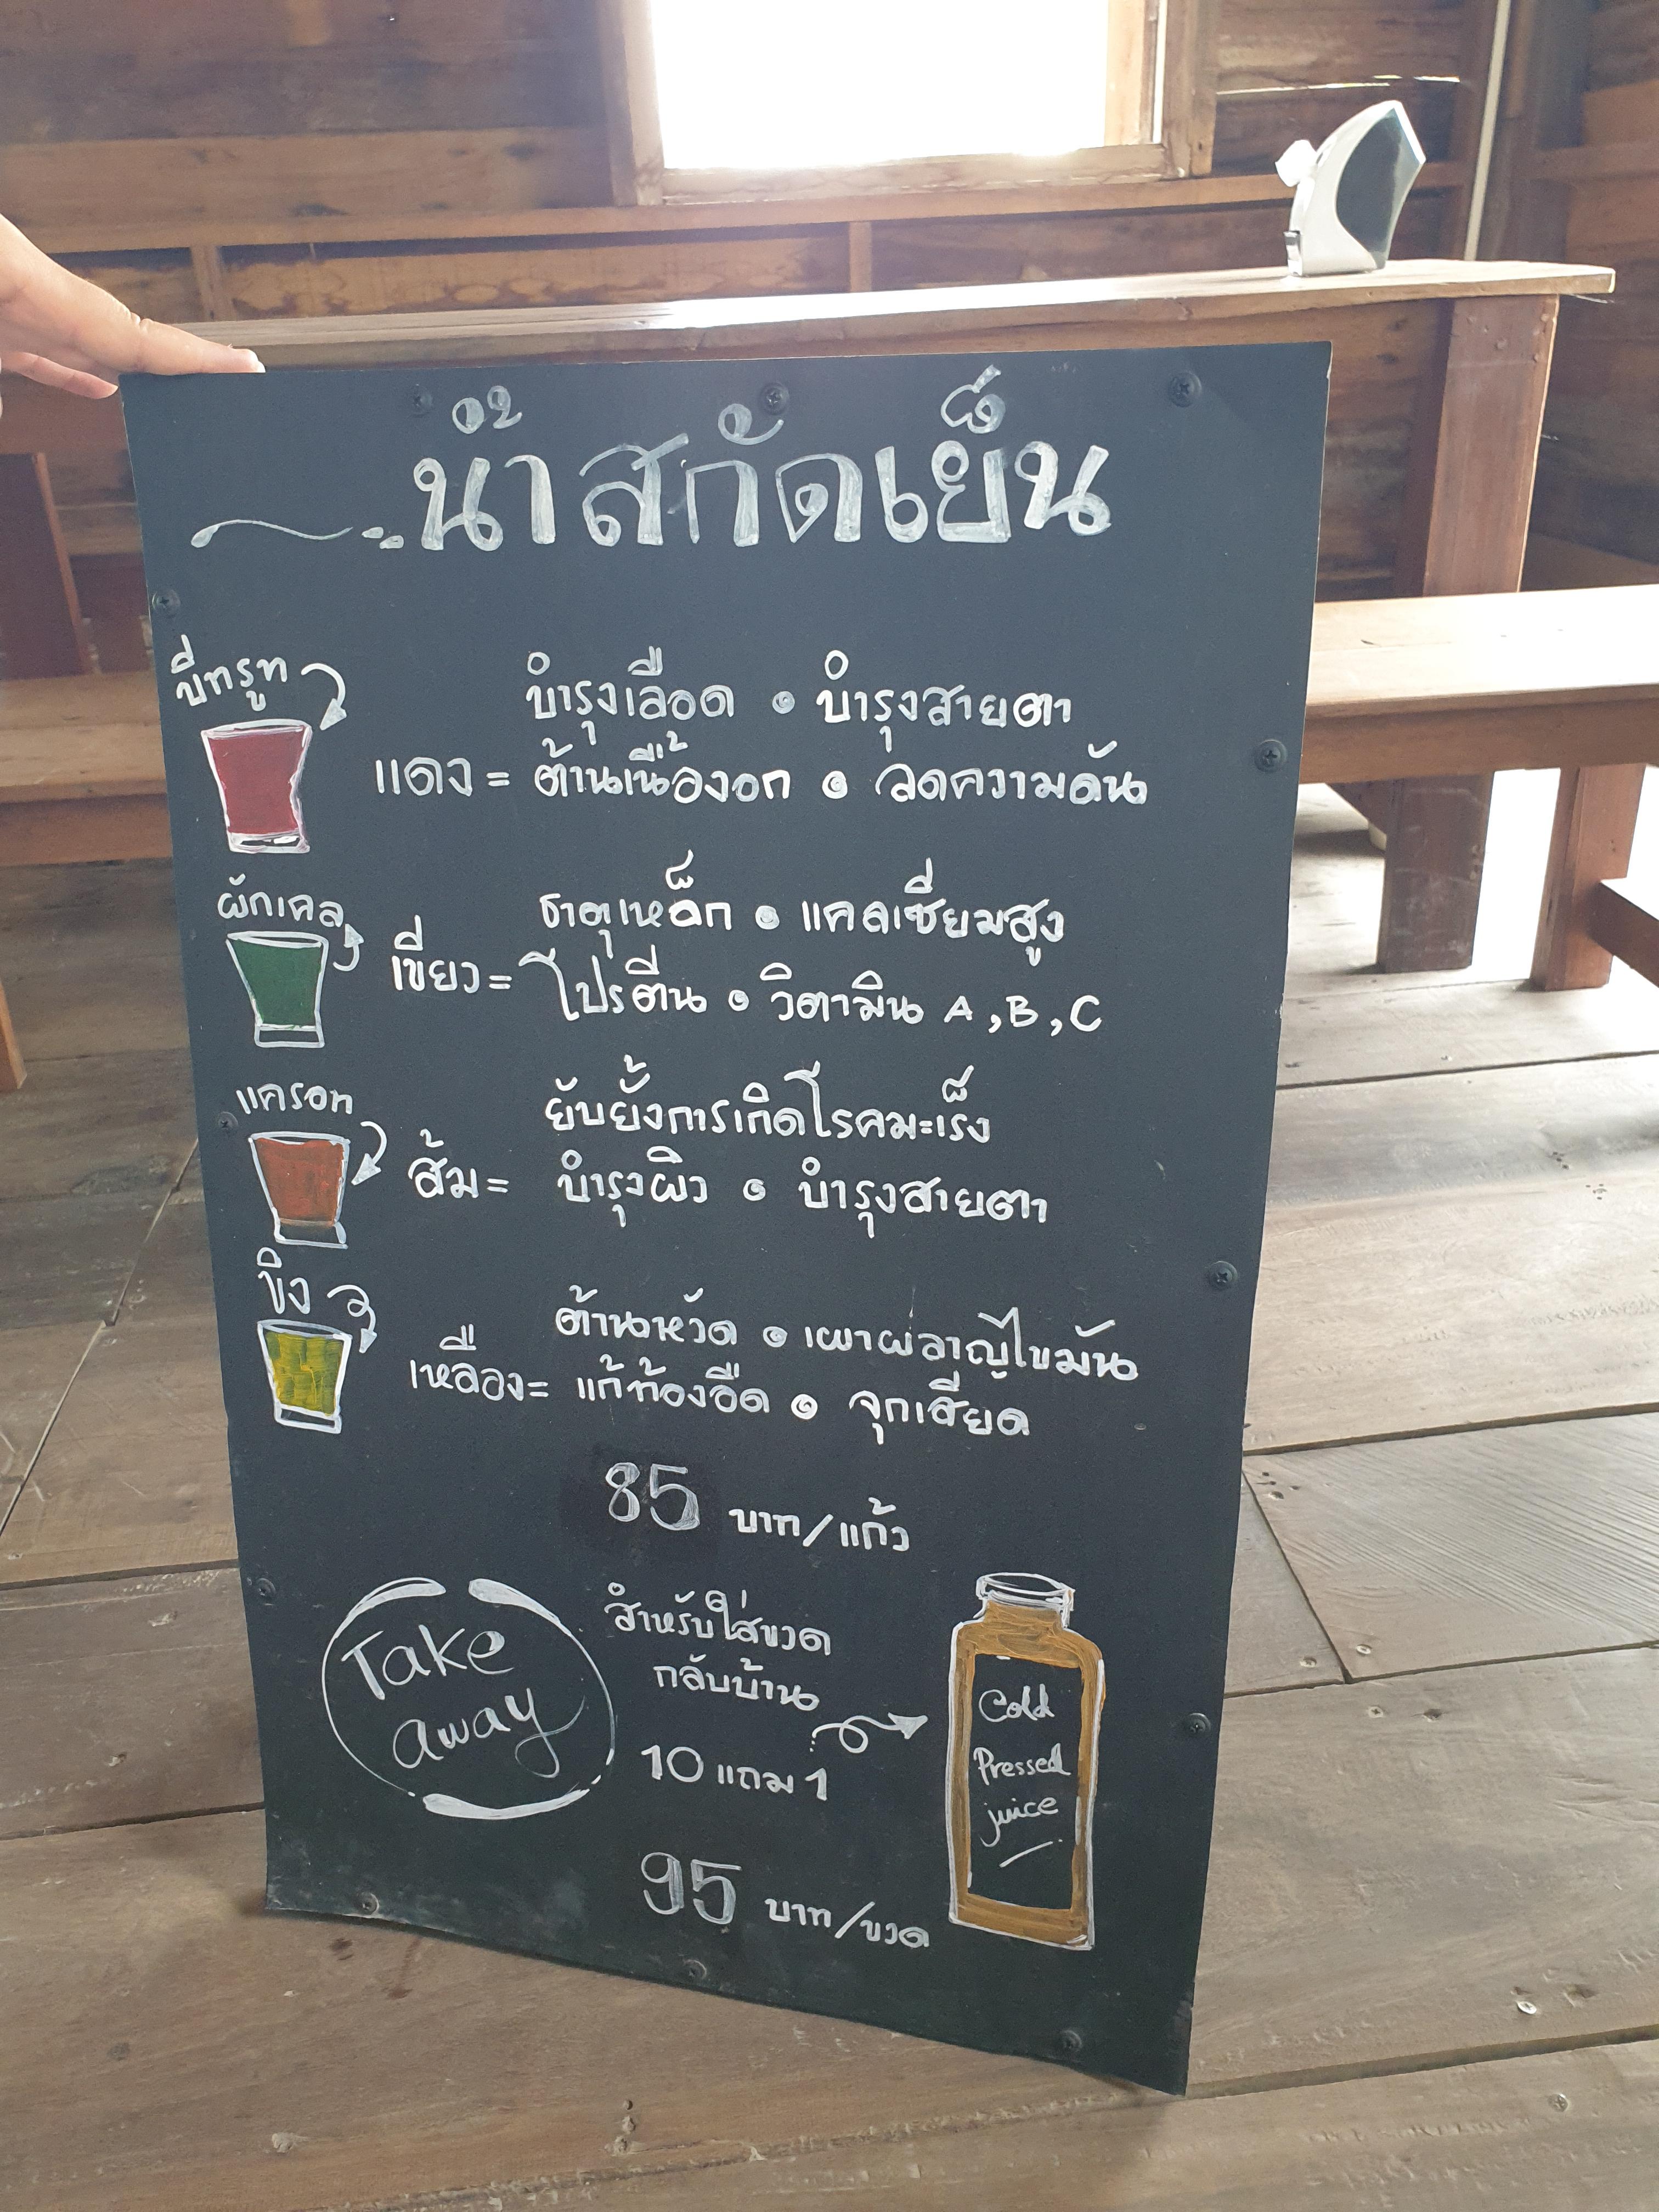 น้ำสกัดเย็น
บีทรูท
บำรุงเลือด • บำรุงสายตา
แดง = ต้านเนื้องอก • ลดความดัน
ผักเคล
ธาตุเหล็ก • แคลเซียมสูง
เขียว = โปรตีน • วิตามิน A,B,C
แครอท
ยับยั้งการเกิดโรคมะเร็ง
ส้ม = บำรุงผิว • บำรุงสายตา
ขิง
ต้านหวัด • เผาผลาญไขมัน
เหลือง = แก้ท้องอืด • จุกเสียด
85 บาท/แก้ว
Take
away
สำหรับใส่ขวด
กลับบ้าน
10 แถม 1
95 บาท/ขวด
Cold
Pressed
juice